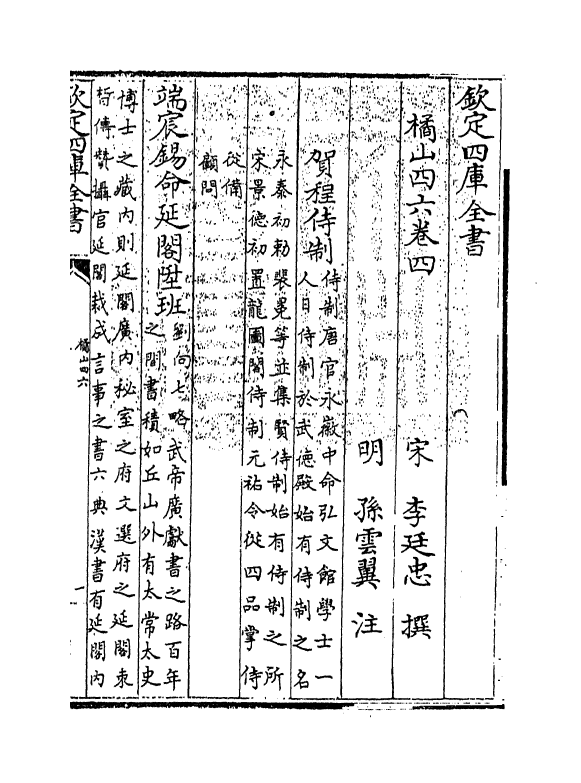 欽定四庫全書
橘山四六卷四
宋 李廷忠 撰
明 孫雲翼 注
賀程侍制侍制唐官永徽中命弘文館學士一
人日侍制於武德殿始有侍制之名
永泰初勅裴冕等並集賢侍制始有侍制之所
宋景德初置龍圖閣侍制元祐令從四品掌侍
從備
顧問
端宸錫命延閣陞班劉向七略武帝廣獻書之路百年
之間書積如丘山外有太常太史
博士之藏內則延閣廣內秘室之府文選府之延閣朱
哲傳贊攝官延閣裁成言事之書六典漢書有延閣內
欽定四庫全書
橘山四六
一